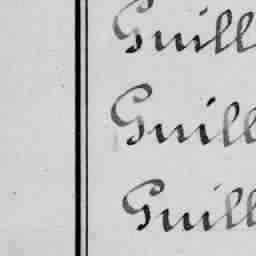 Guill
Guill
Guill